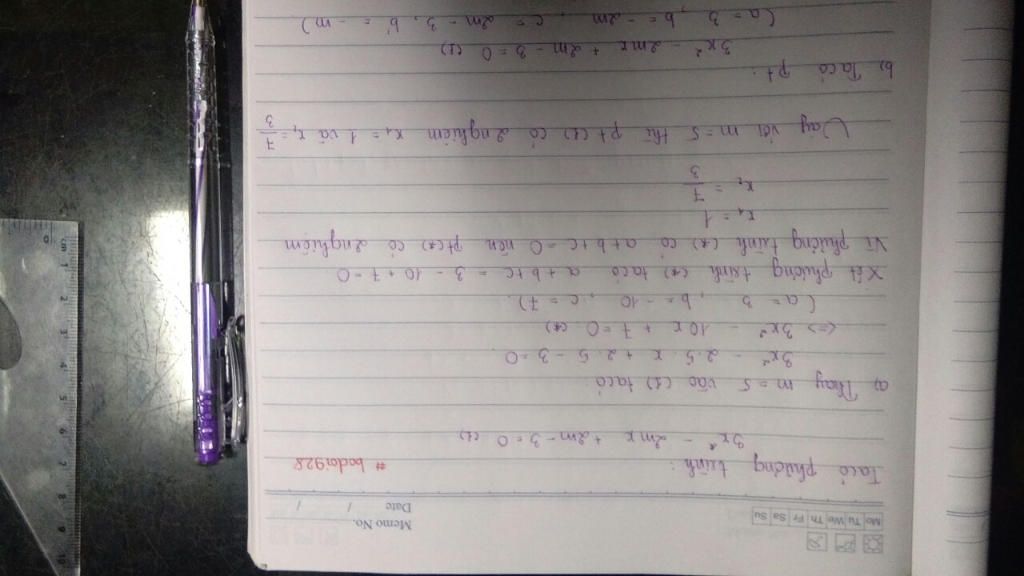 Memo No.
Date / /
Mo Tu We Th Fr Sa Su
Ta có phương trình: #bodon928
3x² - 2mx + 2m - 3 = 0 (1)
a) Thay m = 5 vào (1) ta có:
3x² - 2.5.x + 2.5 - 3 = 0
<=> 3x² - 10x + 7 = 0 (*)
(a = 3, b = -10, c = 7).
Xét phương trình (*) ta có a + b + c = 3 - 10 + 7 = 0
Vì phương trình (*) có a + b + c = 0 nên pt (*) có 2 nghiệm
x₁ = 1
x₂ = 7/3
Vậy với m = 5 thì pt (*) có 2 nghiệm x₁ = 1 và x₁ = 7/3
b) Ta có pt:
3x² - 2mx + 2m - 3 = 0 (1)
(a = 3, b = -2m, c = 2m - 3, b' = -m)
cm
0
1
2
3
4
5
6
7
8
9
10